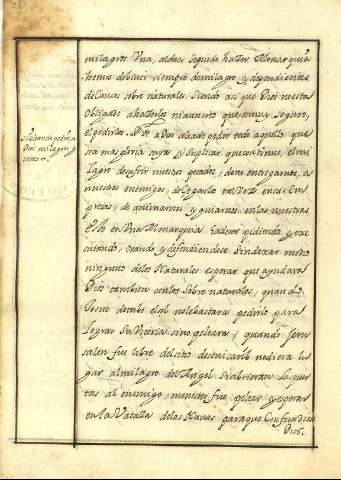 milagro. Una, aldea se puede hazer Monarquia
hemos de biuir siempre de milagro, y dependientes
de Causas sobre naturales, siendo asi que Dios no esta
obligado a hazerlos ni aun esto que es muy seguro,
el pedirlos. A Dios se ha de pedir todo aquello que
sea mas gloria suya, y suplicar que continue, el mi
lagro de sufrir nuestros pecados, de no entregarnos, a
nuestros enemigos, de cegarlos tal vez en sus Em
presas, de animarnos, y guiarnos en las nuestras
Esto en Una Monarquia ha de ser pidiendo, y exe
cutando, orando y defendiendose sin dexar medio
ninguno de los Naturales esperar que ayudara
Dios tambien con los sobre naturales, quando
Josue detubo el sol no le bastara pedirlo para
lograr su Vitoria sino peleara, y quando Jeru
salen fue libre del sitio de senicarib no diera lu
gar al milagro del Angel si abrieran las puer
tas al enemigo, menester fue pelear y esperar
en la Vatalla de las Nauas para que Confundiera
Dios.
Si se han de pedir a
Dios milagros y
como es.